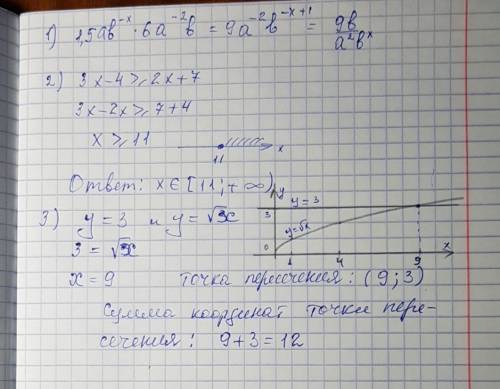 1) 1,5ab⁻ˣ · 6a⁻²b = 9a⁻²b⁻ˣ⁺¹ = 9b / a²bˣ
2) 3x-4 ⩾ 2x+7
3x-2x ⩾ 7+4
x ⩾ 11
11 x
Ответ: x ∈ [11; +∞)
3) y = 3 и y = √x
3 = √x
x = 9
y
y = 3
3
y=√x
0 1 4 9 x
точка пересечения: (9; 3)
Сумма координат точки пере-
сечения: 9+3 = 12